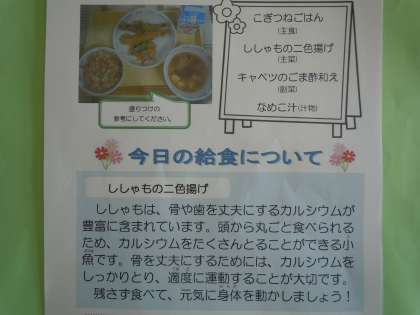 こぎつねごはん
(主食)
ししゃもの二色揚げ
(主菜)
キャベツのごま酢和え
(副菜)
なめこ汁(汁物)
盛りつけの
参考にしてください。
今日の給食について
ししゃもの二色揚げ
ししゃもは、骨や歯を丈夫にするカルシウムが
豊富に含まれています。頭から丸ごと食べられる
ため、カルシウムをたくさんとることができる小
魚です。骨を丈夫にするためには、カルシウムを
しっかりとり、適度に運動することが大切です。
残さず食べて、元気に身体を動かしましょう！